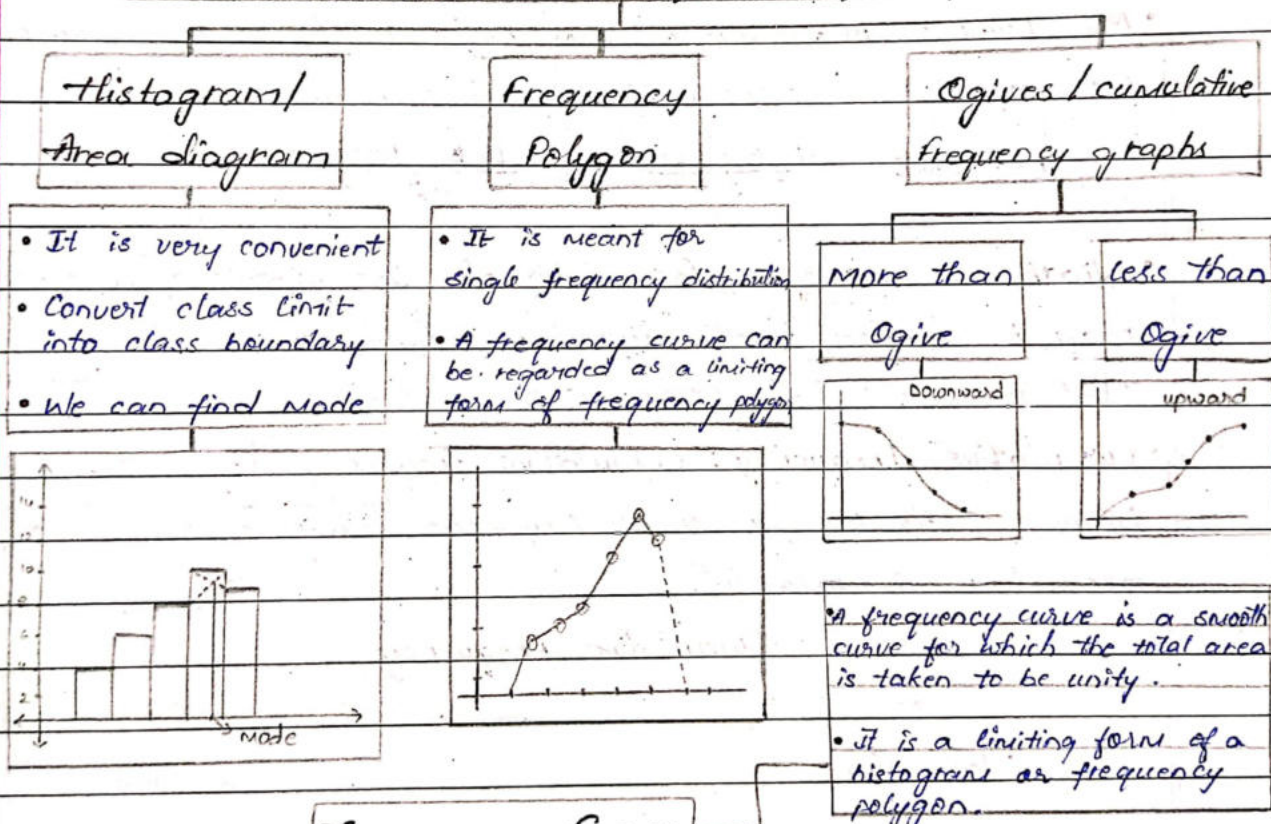 Histogram/
Area diagram
Frequency
Polygon
Ogives / cumulative
frequency graphs
• It is very convenient
• Convert class limit
into class boundary
• We can find Mode
• It is meant for
single frequency distribution
• A frequency curve can
be regarded as a limiting
form of frequency polygon
More than
Ogive
Less than
Ogive
Downward
upward
4
2
Mode
• A frequency curve is a smooth
curve for which the total area
is taken to be unity.
• It is a limiting form of a
histogram or frequency
polygon.